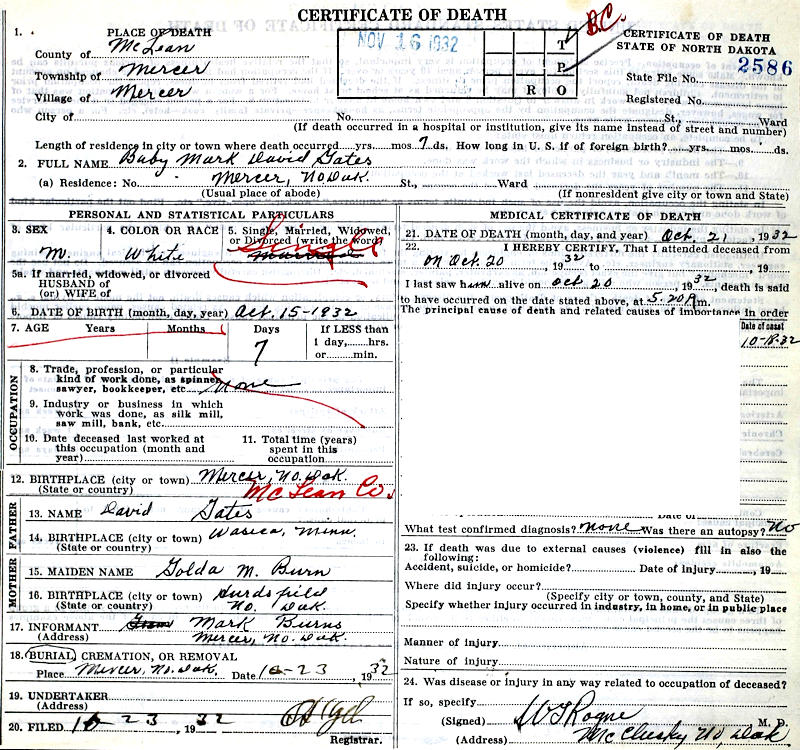 CERTIFICATE OF DEATH
1. PLACE OF DEATH
County of McLean
Township of Mercer
Village of Mercer
City of No. St., Ward
(If death occurred in a hospital or institution, give its name instead of street and number)
NOV 16 1932
T
P
R O
B.C.
CERTIFICATE OF DEATH
STATE OF NORTH DAKOTA
2586
State File No.
Registered No.
Length of residence in city or town where death occurred yrs. mos. 7 ds. How long in U. S. if of foreign birth? yrs. mos. ds.
2. FULL NAME Baby Mark David Gates
(a) Residence: No. Mercer, No. Dak. St., Ward
(Usual place of abode) (If nonresident give city or town and State)
PERSONAL AND STATISTICAL PARTICULARS
3. SEX M.
4. COLOR OR RACE White
5. Single, Married, Widowed, or Divorced (write the word) Single
5a. If married, widowed, or divorced
HUSBAND of
(or) WIFE of
6. DATE OF BIRTH (month, day, year) Oct. 15-1932
7. AGE Years Months Days If LESS than
7 1 day, hrs.
or min.
OCCUPATION
8. Trade, profession, or particular
kind of work done, as spinner,
sawyer, bookkeeper, etc. None
9. Industry or business in which
work was done, as silk mill,
saw mill, bank, etc.
10. Date deceased last worked at
this occupation (month and
year)
11. Total time (years)
spent in this
occupation
12. BIRTHPLACE (city or town) Mercer, No. Dak.
(State or country) McLean Co.
FATHER
13. NAME David Gates
14. BIRTHPLACE (city or town) Waseca, Minn.
(State or country)
MOTHER
15. MAIDEN NAME Golda M. Burn
16. BIRTHPLACE (city or town) Hurdsfield
(State or country) No. Dak.
17. INFORMANT Mark Burns
(Address) Mercer, No. Dak.
18. BURIAL, CREMATION, OR REMOVAL
Place Mercer, No. Dak. Date 10-23, 1932
19. UNDERTAKER
20. FILED 10-23, 1932
Registrar.
MEDICAL CERTIFICATE OF DEATH
21. DATE OF DEATH (month, day, and year) Oct. 21, 1932
22. I HEREBY CERTIFY, That I attended deceased from
on Oct. 20, 1932 to , 19
I last saw him alive on Oct 20, 1932, death is said
to have occurred on the date stated above, at 5.20 P.m.
The principal cause of death and related causes of importance in order
Date of onset
10-18-32
Date of
What test confirmed diagnosis? none Was there an autopsy? No
23. If death was due to external causes (violence) fill in also the
following:
Accident, suicide, or homicide? Date of injury , 19
Where did injury occur?
(Specify city or town, county, and State)
Specify whether injury occurred in industry, in home, or in public place
Manner of injury
Nature of injury
24. Was disease or injury in any way related to occupation of deceased?
If so, specify
(Signed) M. D.
(Address) McClusky No. Dak